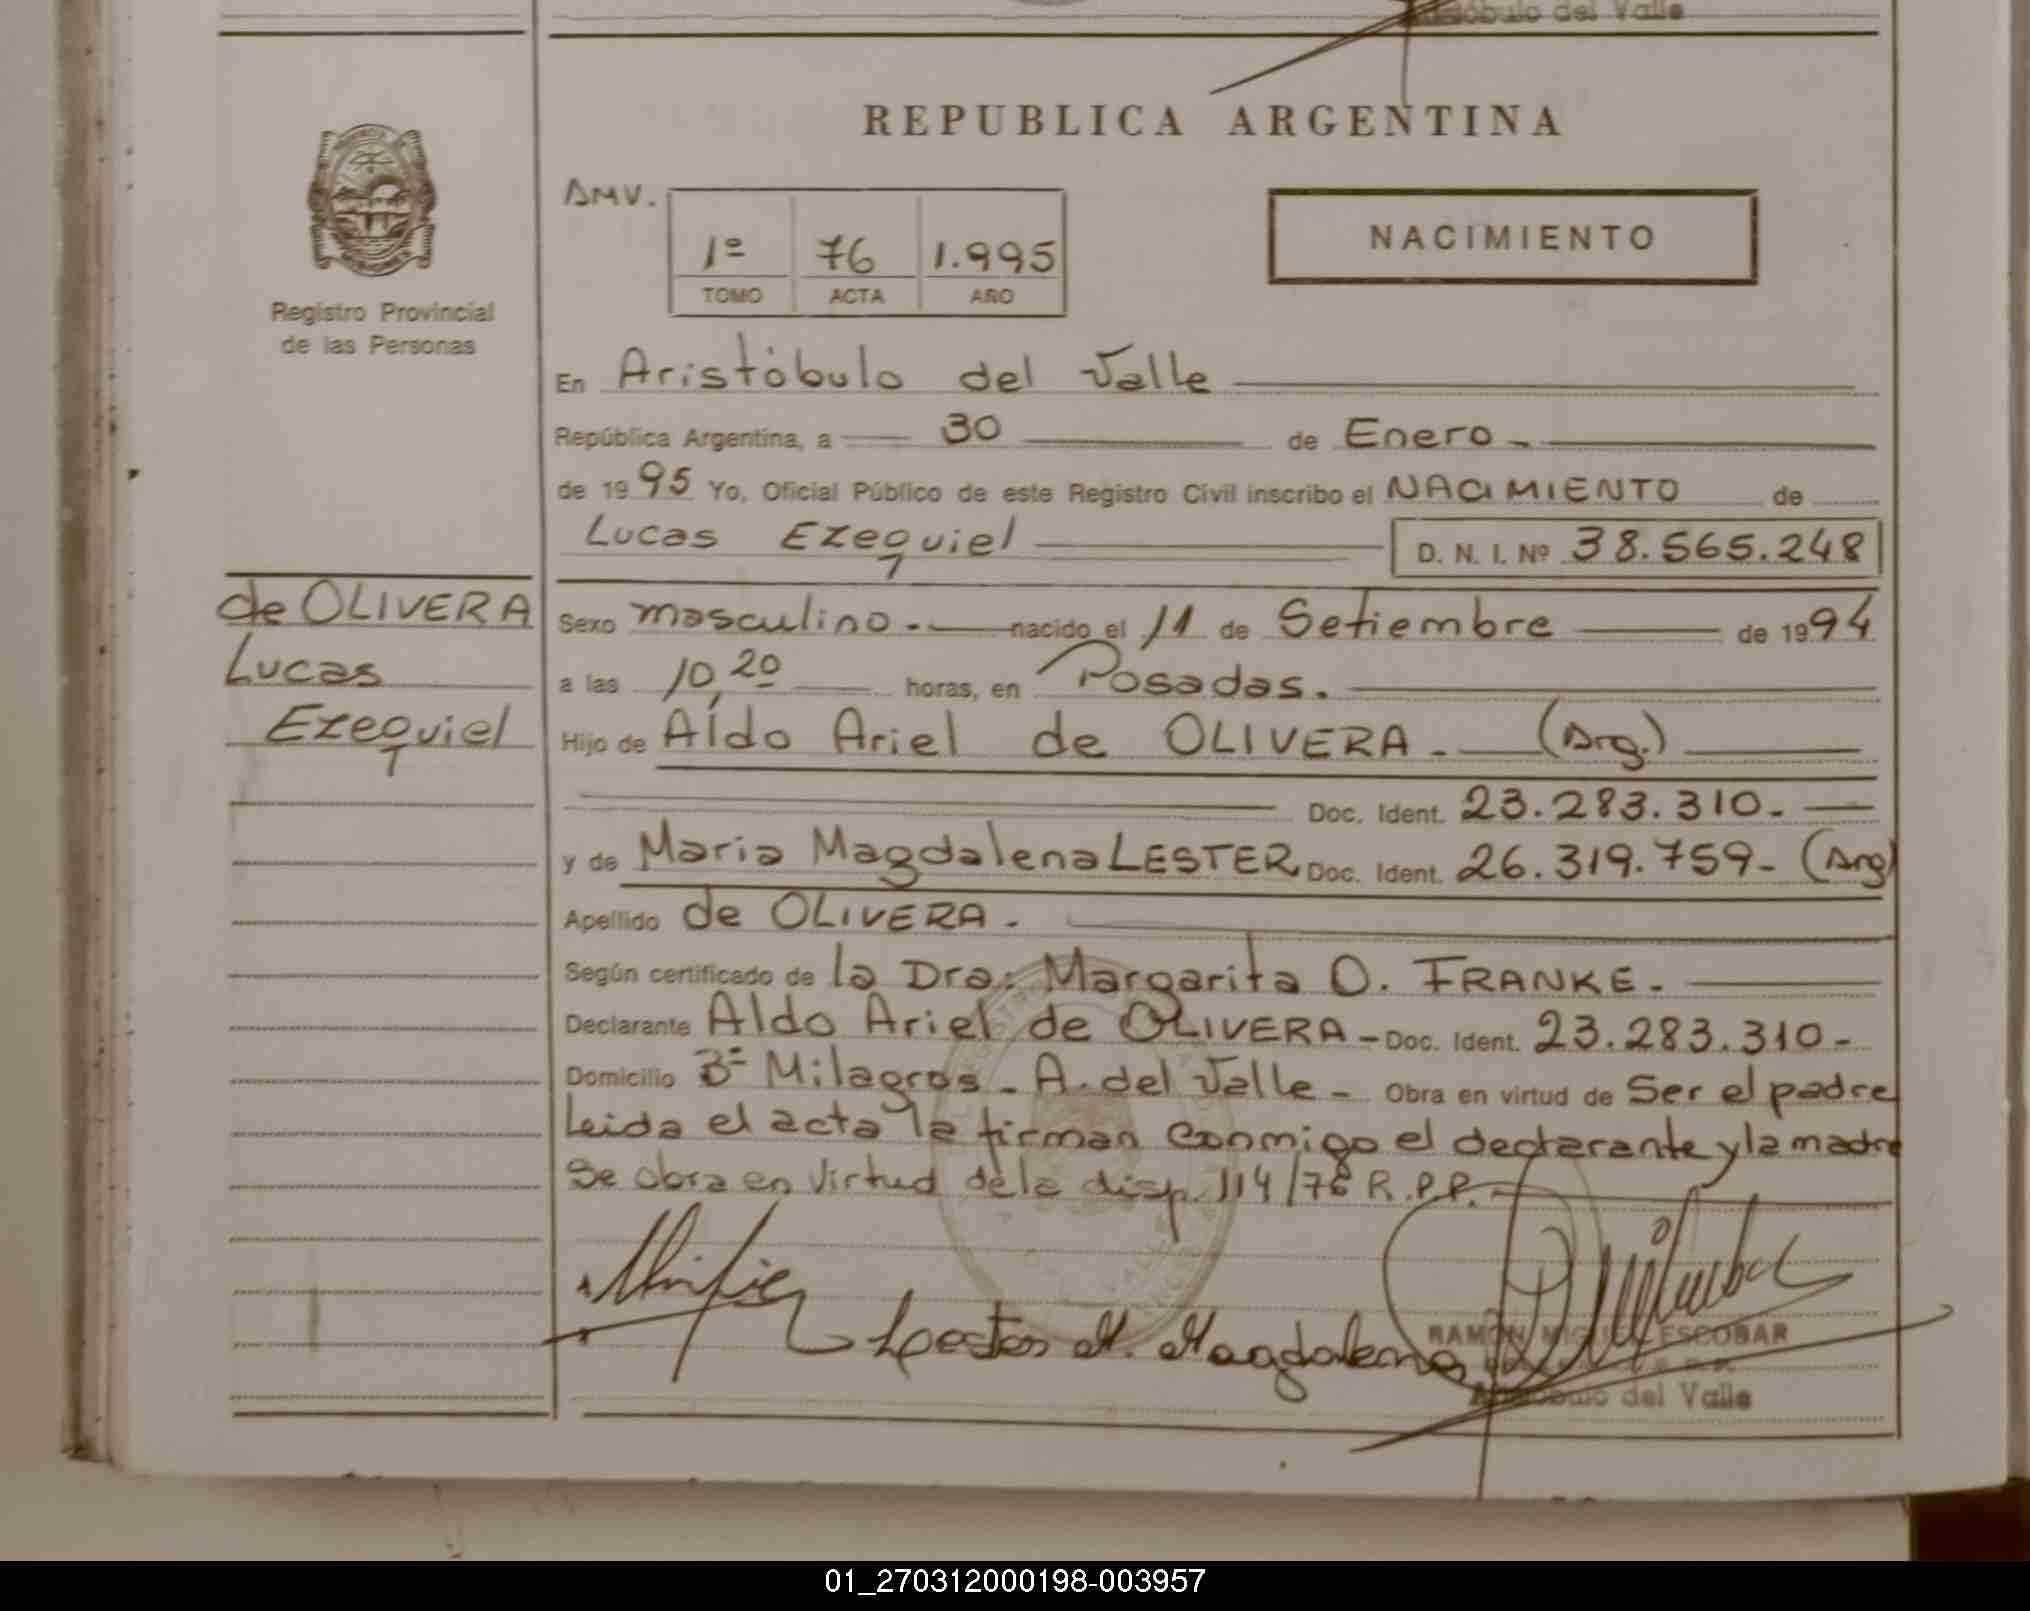 Aristóbulo del Valle
REPUBLICA ARGENTINA
AMV.
1º 76 1.995
TOMO ACTA AÑO
NACIMIENTO
Registro Provincial
de las Personas
En Aristóbulo del Valle
República Argentina, a 30 de Enero -
de 1995 Yo, Oficial Público de este Registro Civil inscribo el NACIMIENTO de
Lucas Ezequiel D. N. I. Nº 38.565.248
de OLIVERA
Lucas
Ezequiel
Sexo masculino.- nacido el 11 de Setiembre de 1994
a las 10,20 horas, en Posadas.
Hijo de Aldo Ariel de OLIVERA - (Arg.)
Doc. Ident. 23.283.310-
y de Maria Magdalena LESTER Doc. Ident. 26.319.759- (Arg)
Apellido de OLIVERA -
Según certificado de la Dra. Margarita O. FRANKE -
Declarante Aldo Ariel de OLIVERA - Doc. Ident. 23.283.310-
Domicilio Bº Milagros - A. del Valle - Obra en virtud de Ser el padre
Leida el acta la firman conmigo el declarante y la madre
Se obra en virtud de la disp. 114/76 R.P.P. -
Lester M. Magdalena
RAMON MIGUEL ESCOBAR
Aristóbulo del Valle
01_270312000198-003957